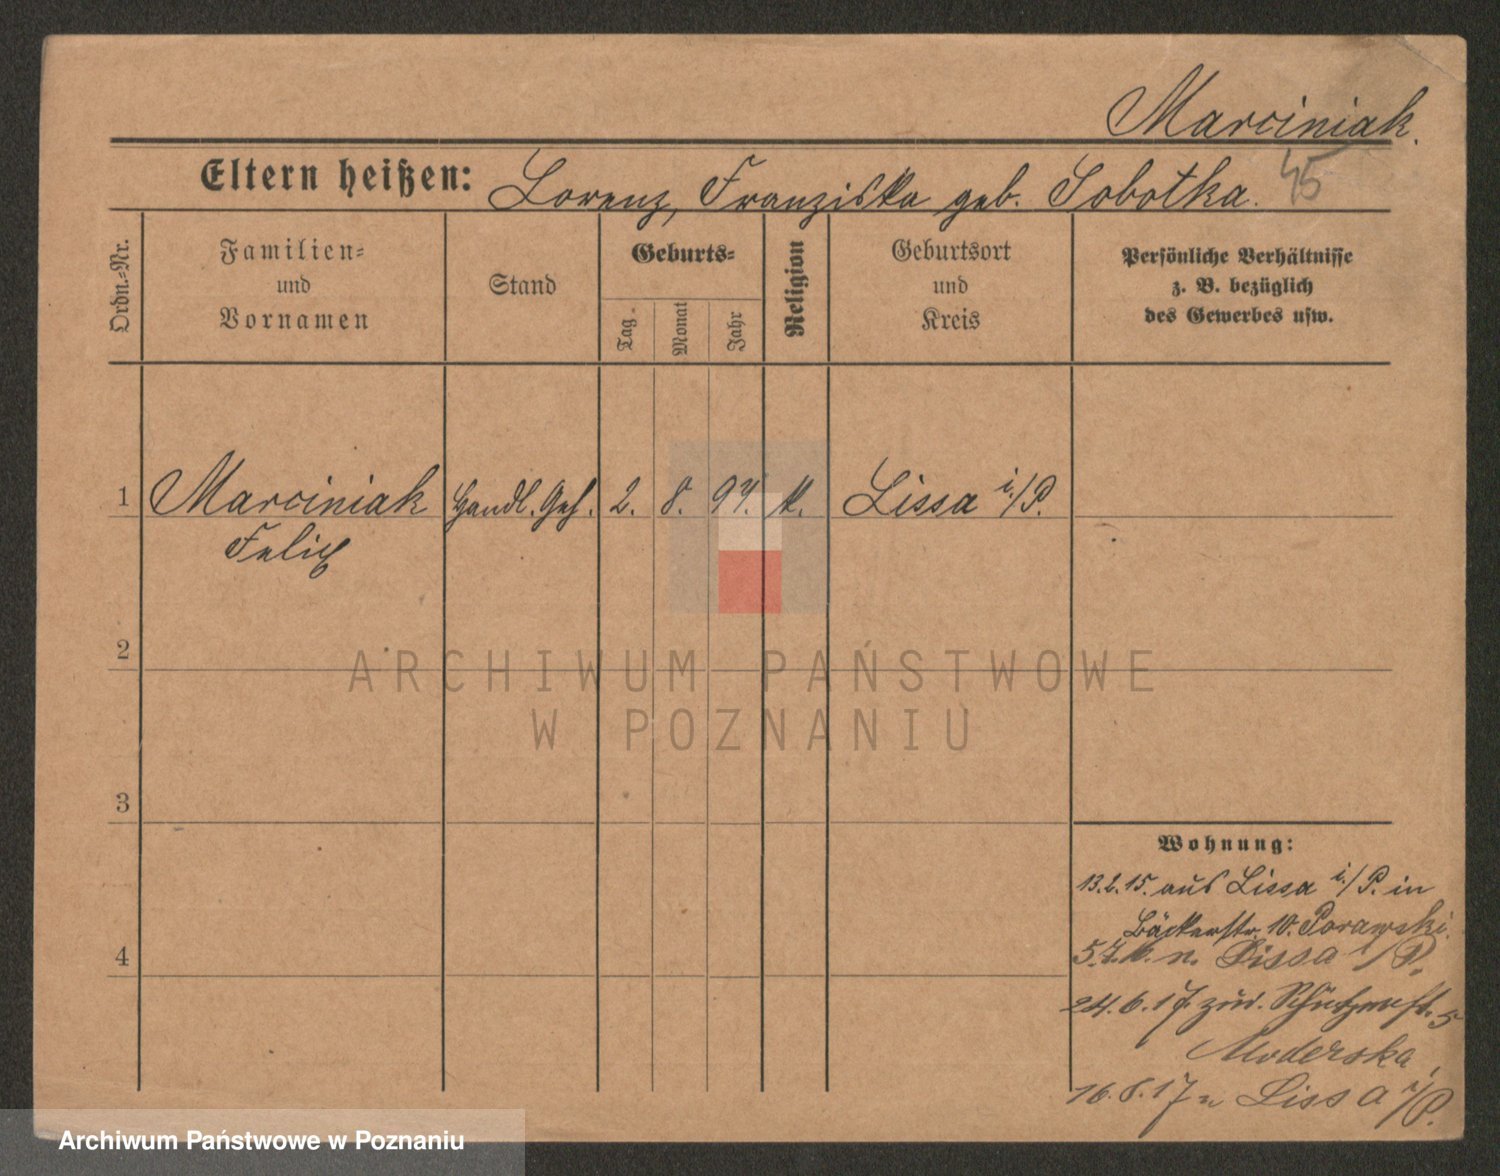 Marciniak.
Eltern heißen: Lorenz, Franziska geb. Sobotka. 45
Ordn.-Nr.
Familien- und Vornamen
Stand
Geburts-
Tag
Monat
Jahr
Religion
Geburtsort und Kreis
Persönliche Verhältnisse
z. B. bezüglich
des Gewerbes usw.
1 Marciniak Handl. Geh. 2. 8. 97. k. Lissa i/P.
Felix
2
3
4
Wohnung:
13.2.15. aus Lissa i/P. in
Bäckerstr. 10. Porawski.
5.7. n. Lissa i/P.
24.6.17. zur. Schützenstr. 5
Moderska,
16.8.17 n Lissa i/P.
ARCHIWUM PAŃSTWOWE
W POZNANIU
Archiwum Państwowe w Poznaniu